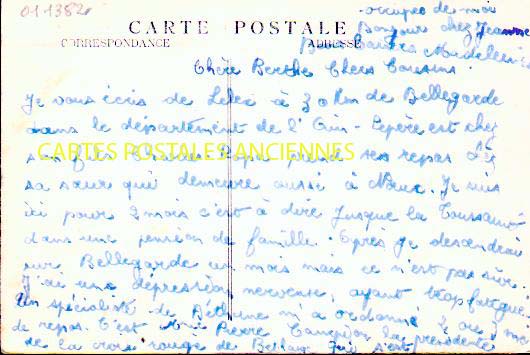 011382
occupée de moi
Bonjour chez Jeanne
CARTE POSTALE
CORRESPONDANCE
ADRESSE
Chère Berthe Chers Cousins.
Je vous écris de Lelex à 30 km de Bellegarde
dans le département de l'Ain - Pepère est chez
son fils Papa prend ses repas chez
CARTES POSTALES ANCIENNES
sa sœur qui demeure aussi à Nœux. Je suis
ici pour 2 mois c'est à dire jusque la Toussaint
dans une pension de famille. Après je descendrai
sur Bellegarde un mois mais ce n'est pas sûr.
J'ai une dépression nerveuse, ayant trop fatigué.
Un spécialiste de Béthune m'a ordonné 2 ou 3 mois
de repos. C'est Pierre la présidente
de la croix rouge de qui s'est